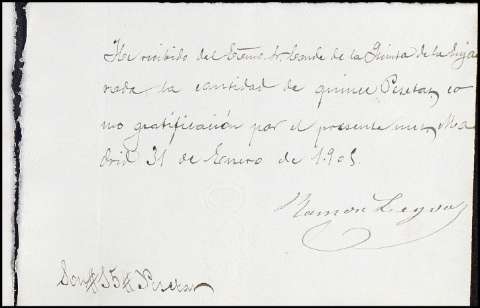 He recibido del Exmo. Sr. Conde de la Quinta de la Enja
rada la cantidad de quince Pesetas, co
mo gratificación por el presente mes, Ma
drid 31 de Enero de 1.905
Ramon Leyva
Son # 15 # Pesetas